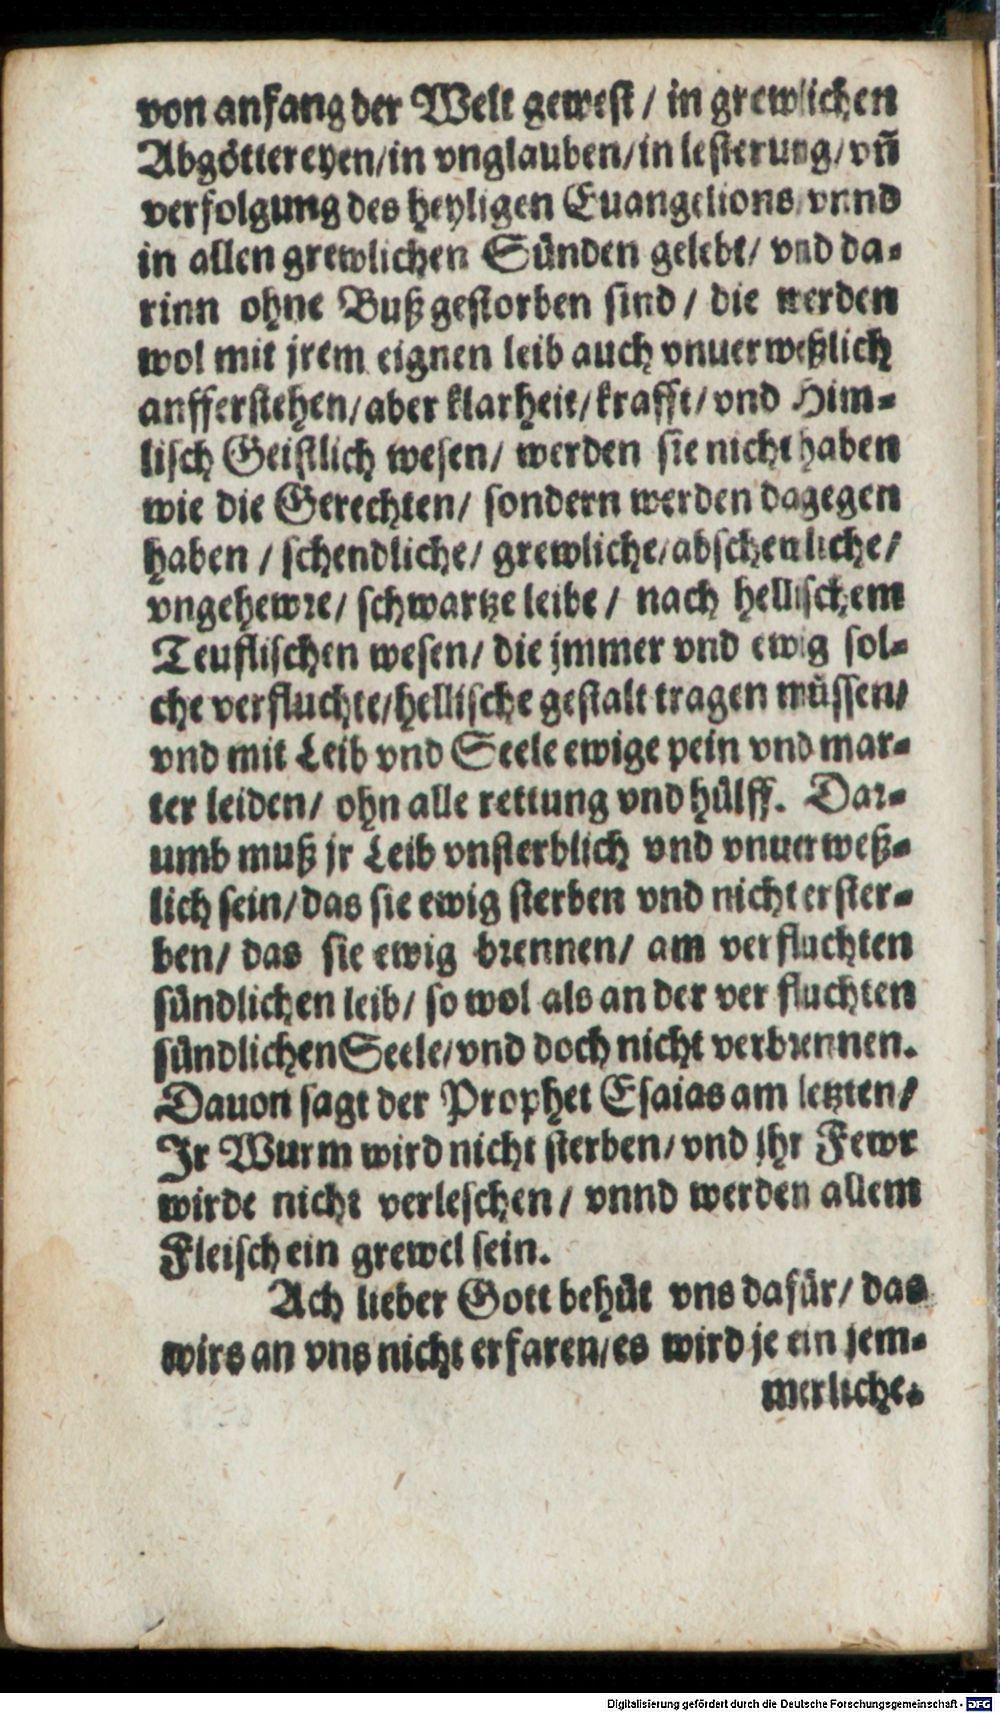 von anfang der Welt gewest / in grewlichen
Abgöttereyen/in vnglauben/in lesterung/ vñ
verfolgung des heyligen Euangelions/ vnnd
in allen grewlichen Sünden gelebt/ vnd da-
rinn ohne Buß gestorben sind / die werden
wol mit jrem eignen leib auch vnuerweßlich
aufferstehen/aber klarheit/krafft/ vnd Him-
lisch Geistlich wesen/ werden sie nicht haben
wie die Gerechten/ sondern werden dagegen
haben / schendliche/ grewliche/abscheuliche/
vngehewre/ schwartze leibe / nach hellischem
Teuflischen wesen/ die jmmer vnd ewig sol-
che verfluchte/hellische gestalt tragen müssen/
vnd mit Leib vnd Seele ewige pein vnd mar-
ter leiden/ ohn alle rettung vnd hülff. Dar-
umb muß jr Leib vnsterblich vnd vnuerweß-
lich sein/das sie ewig sterben vnd nicht erster-
ben/ das sie ewig brennen/ am verfluchten
sündlichen leib/ so wol als an der verfluchten
sündlichen Seele/vnd doch nicht verbrennen.
Dauon sagt der Prophet Esaias am letzten/
Jr Wurm wird nicht sterben/vnd jhr Fewr
wirde nicht verleschen / vnnd werden allem
Fleisch ein grewel sein.
Ach lieber Gott behüt vns dafür/ das
wirs an vns nicht erfaren/es wird je ein jem-
merliche.
Digitalisierung gefördert durch die Deutsche Forschungsgemeinschaft - DFG